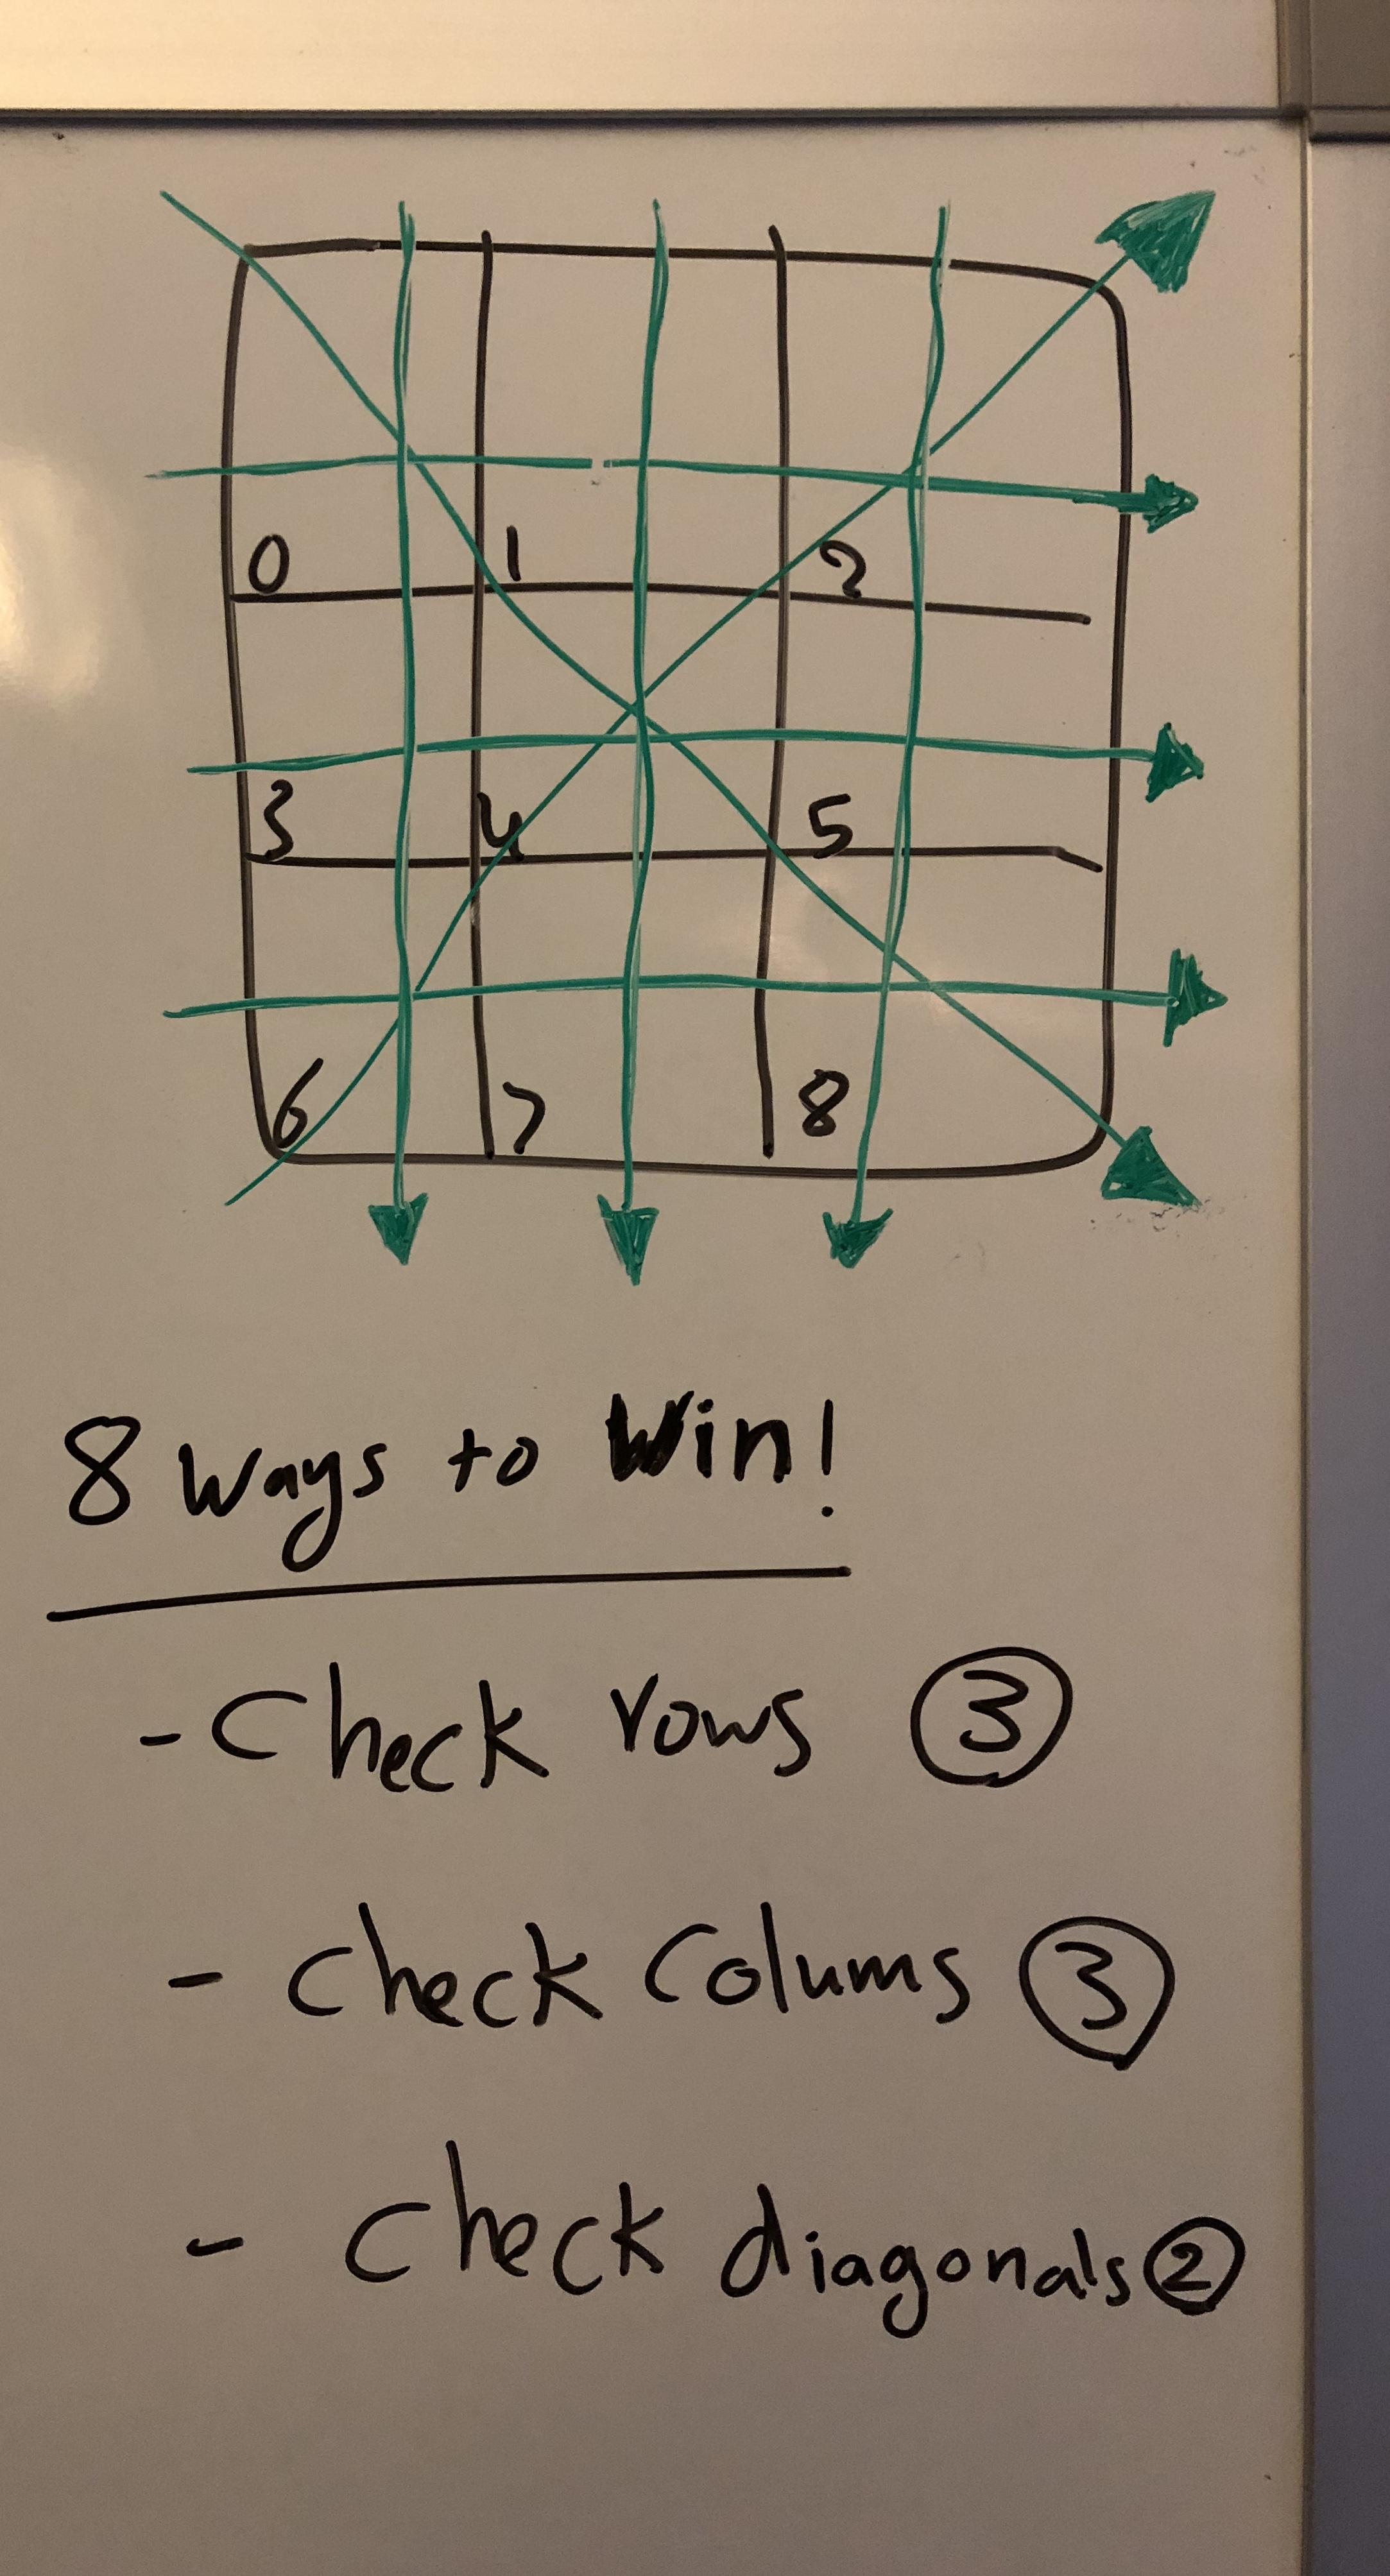 0 1 2
3 4 5
6 7 8
8 Ways to Win!
- Check rows 3
- Check Colums 3
- Check diagonals 2